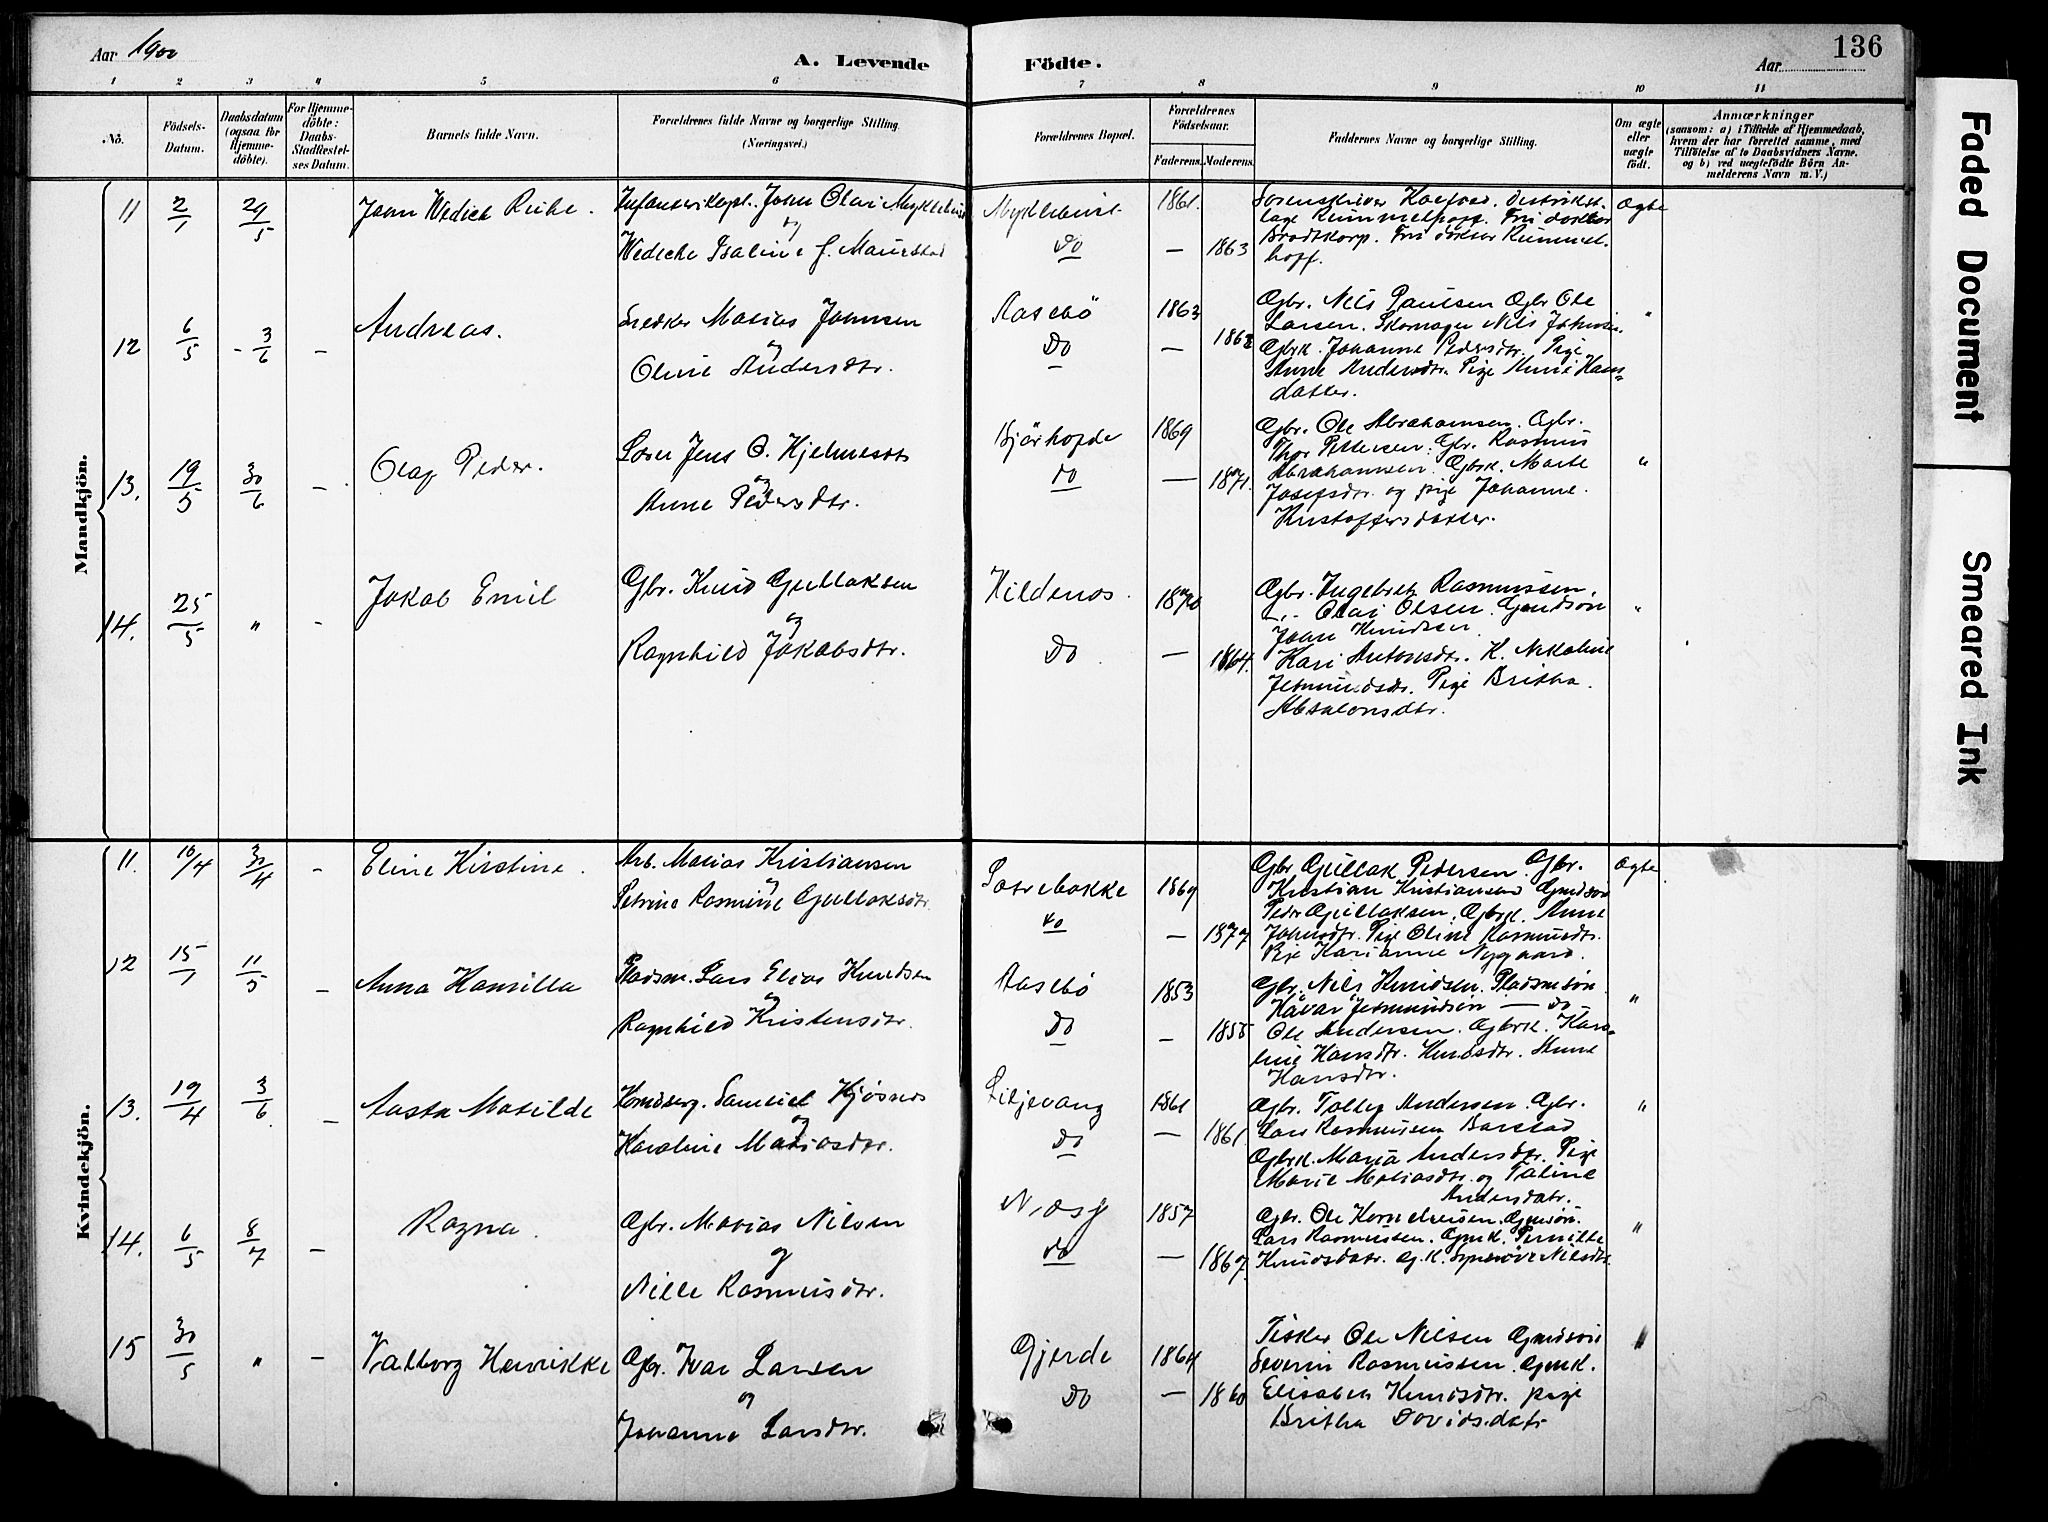 Aar 1900
A. Levende Födte.
Aar
136
1 2 3 4 5 6 7 8 9 10 11
No.
Födsels-Datum.
Daabsdatum (ogsaa for Hjemme-döbte).
For Hjemme-döbte: Daabs-Stadfestel-ses Datum.
Barnets fulde Navn.
Forældrenes fulde Navne og borgerlige Stilling. (Næringsvei.)
Forældrenes Bopæl.
Forældrenes Födselsaar.
Faderens. Moderens.
Faddernes Navne og borgerlige Stilling.
Om ægte eller uægte födt.
Anmærkninger
(saasom: a) i Tilfælde af Hjemmedaab, hvem der har forrettet samme, med Tilföielse af to Daabsvidners Navne, og b) ved uægtefödte Börn Anmelderens Navn m. V.)
Mandkjön.
11 2/1 29/5 John Wedich
Infanterikapt. John Olai Myklebust
og
Wedicke f.
Myklebust
Do
1861 — 1863
Sorenskriver distrikts-
læge Rummelhoff. Fru doktor
Brodtkorp. Fru doktor Rummel-
hoff.
Ægte
12 6/5 - 3/6 — Andreas.
Snedker Matias Johnsen
og
Oline Andersdtr.
Aasebö
Do
1863 — 1862
Gbr. Nils Paulsen Gbr Ole
Larsen. Skomager Nils Johnsen.
Gbrk. Johanne Pedersdtr. Pige
Anne Andersdtr. Pige Anne Hans-
datter.
"
13. 19/5 30/6 — Olaf Peder.
Jens O. Hjelmeset
og
Anne Pedersdtr.
Bjørhovde
do
1869 — 1871.
Gbr. Ole Abrahamsen. Gbr.
Thor Pettersen. Gbr. Rasmus
Abrahamsen. Gbrk. Marte
Josefsdtr. og pige Johanne
Kristoffersdatter.
"
14. 25/5 " - Jakob Emil
Gbr. Knud Gullaksen
og
Ragnhild Jakobsdtr.
Hildenes.
Do
1870 — 1864.
Gbr. Ingebret Rasmussen,
-,- Olai Olsen. Gmdsön
John Knudsen.
Kari Antonsdtr. K. Nikoline
Jetmundsdtr. Pige Britha
Absalonsdtr.
"
Kvindekjön.
11. 10/4 30/4 - Eline Kirstine.
Arb. Matias Kristiansen
og
Petrine Rasmine Gullaksdtr.
do
1869 — 1877
Gbr. Gullak Pedersen. Gbr.
Kristian Kristiansen Gmdsön
Peder Gullaksen. Gbrk. Anne
Johnsdtr. Pige Oline Rasmusdtr.
Pige Karianne Nygaard.
Ægte
12 15/1 11/5 — Anna Hansilla
Pladsm. Lars Elias Knudsen
og
Ragnhild Kristensdtr.
Aasebö
Do
1853 — 1855
Gbr. Nils Knudsen. Pladsmsön
Håvar Jetmundsön — do —
Ole Andersen. Gbrk. Karo-
line Hansdtr. Knudsdtr. Anne
Hansdtr.
"
13. 19/4 3/6 — Aasta Matilde
Samuel Hjøsnes
og
Karoline Matiasdtr.
Liljevang
Do
1861 — 1861
Gbr. Tolley Andersen. Gbr.
Lars Rasmussen Barstad
Gbrk. Maria Andersdtr. Pige
Marie Matiasdtr. og Taline
Andersdatr.
"
14. 6/5 8/7 — Ragna.
Gbr. Matias Nilsen
og
Nille Rasmusdtr.
do
1857 — 1867.
Gbr. Ole Kornelsen. Gmdsön.
Lars Rasmussen. Gmk. Pernille
Knudsdatr. G.k. Synnöve Nilsdtr.
"
15 30/5 " — Valborg Henrikke
Gbr. Ivar Larsen
og
Johanne Larsdtr.
Gjerde
Do
1864 — 1860
Fisker Ole Nilsen Gmdsön
Severin Rasmussen. Gmk.
Elisabet Knudsdtr. pige
Britha Davidsdatr
"
Faded Document
Smeared Ink